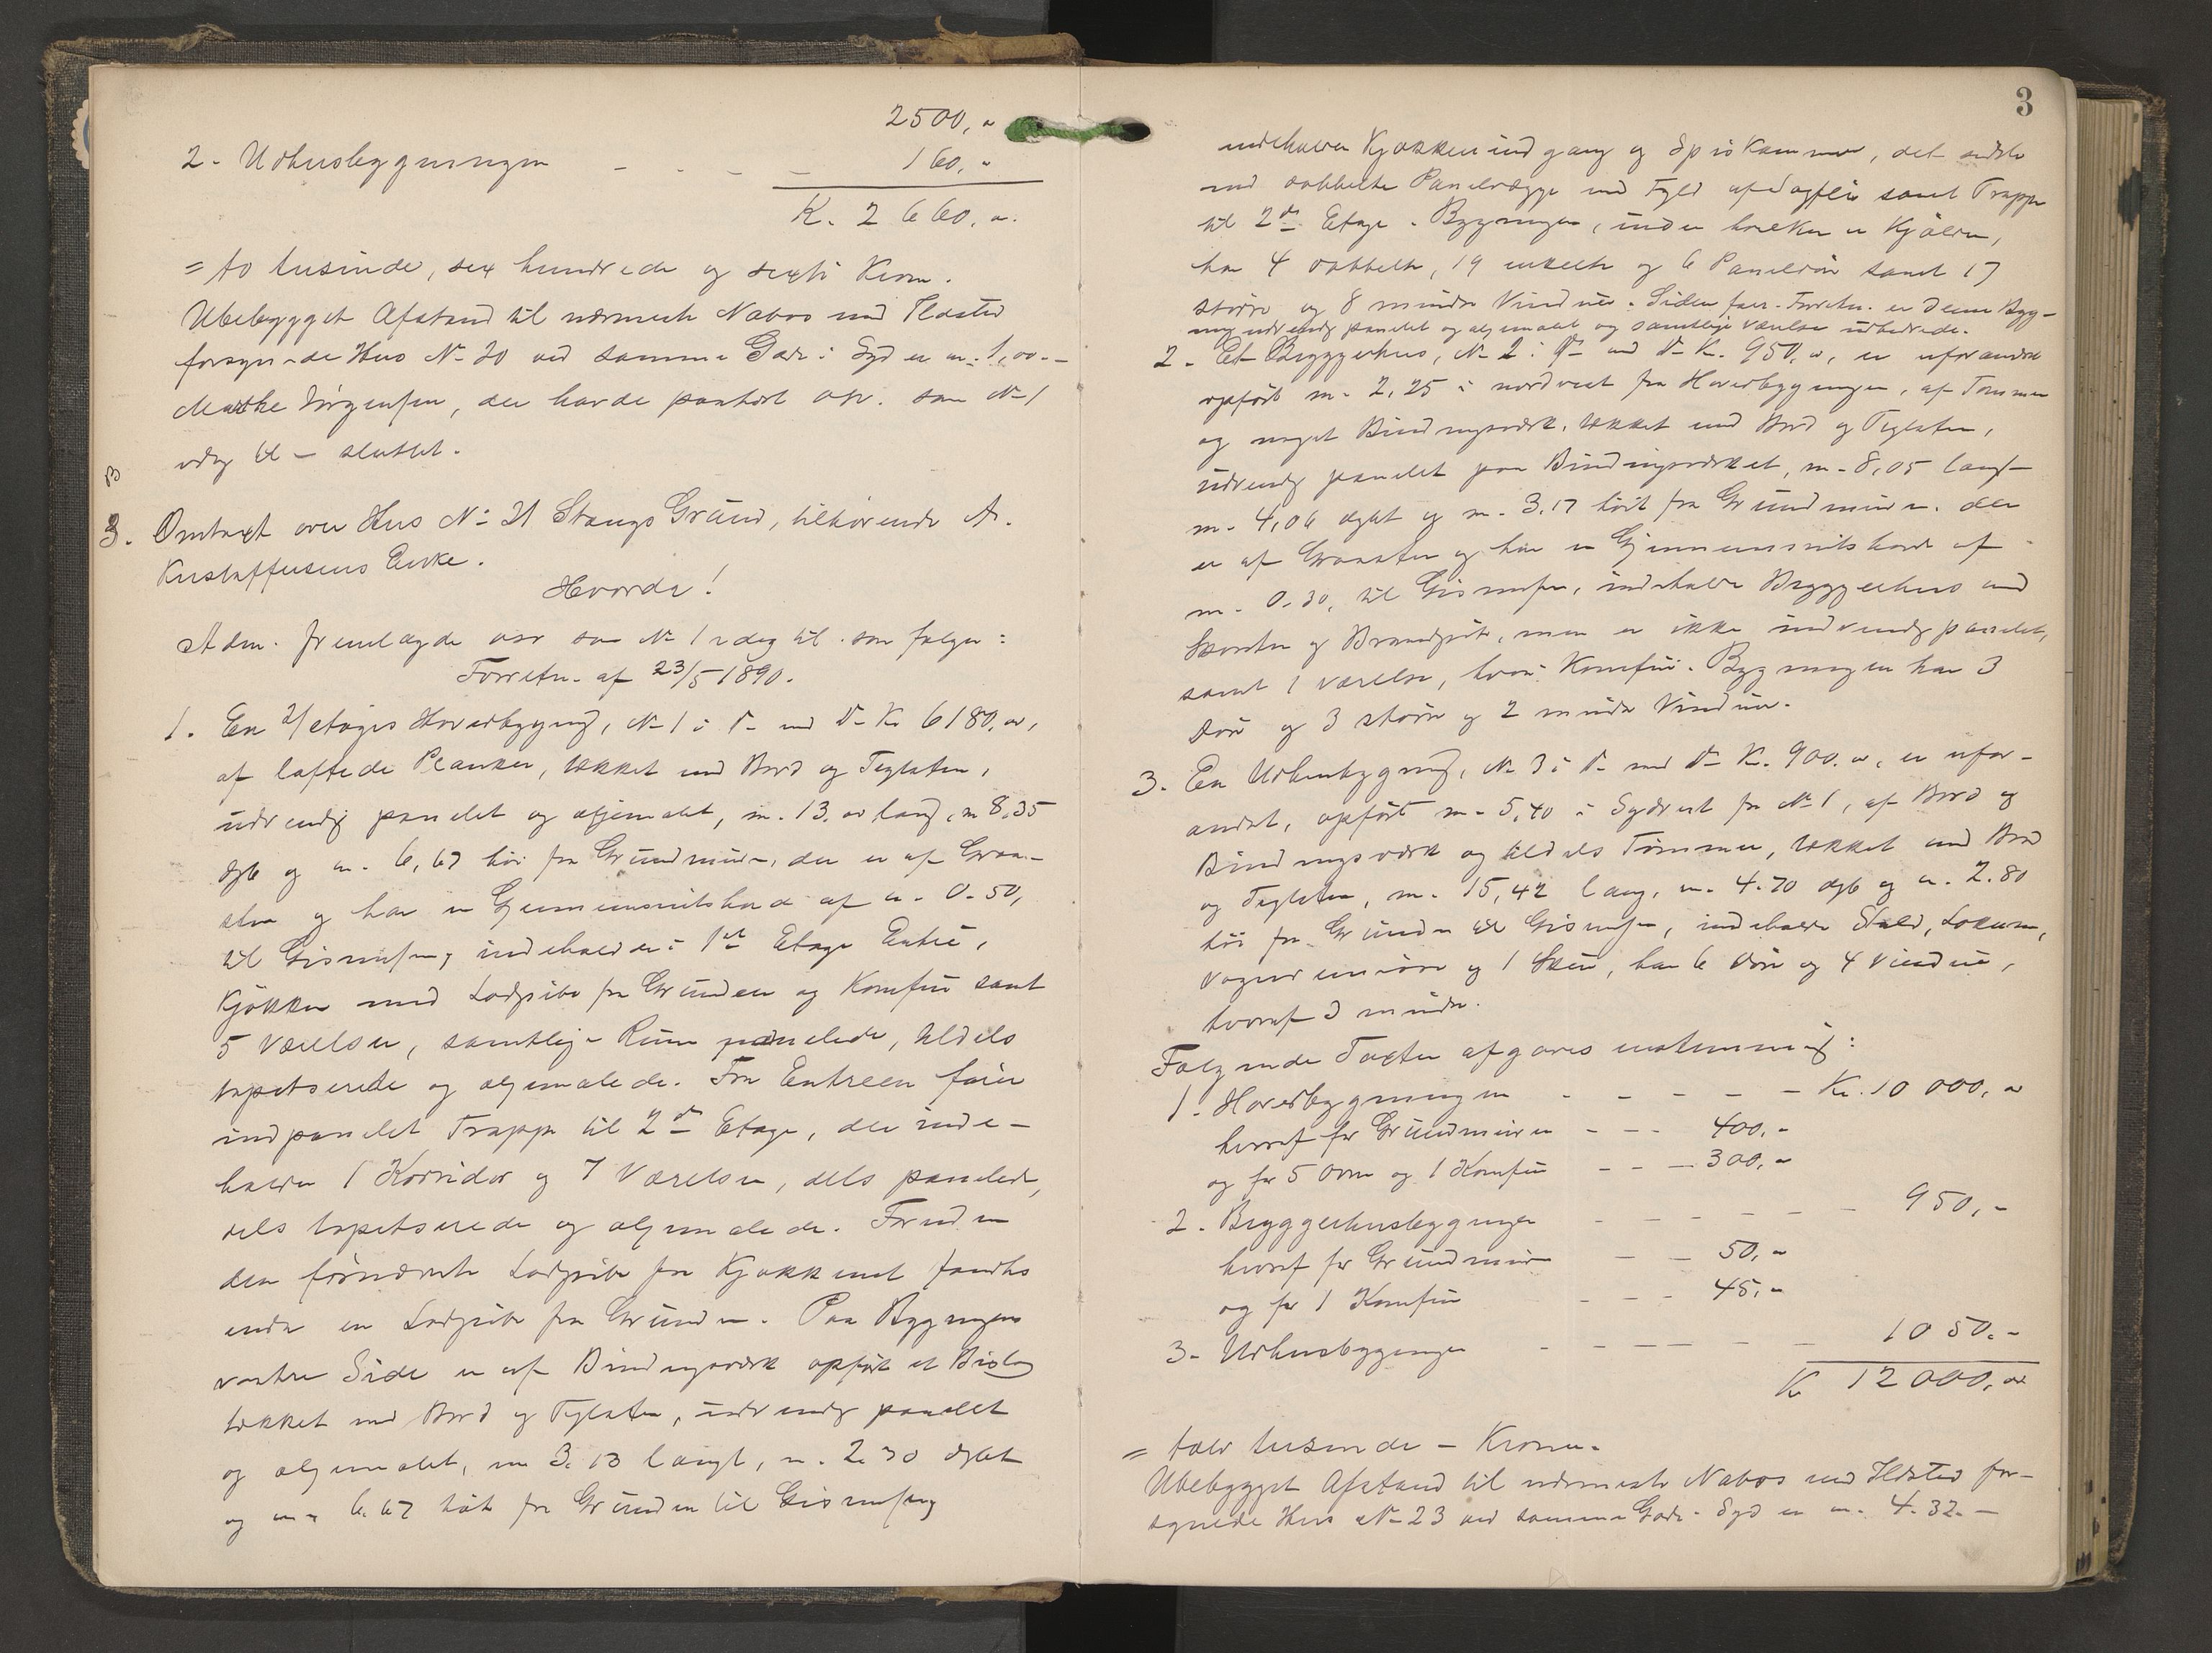 2500, „
2. Udhusbygningen - - - - 160, „
K. 2660, „.
= to tusinde, sex hundrede og sexti Kron.
Ubebygget Afstand til nærmeste Nabos med Ildsted
forsynede Hus No 20 ved samme Gade i Syd er m. 1,00.-
Marthe Jörgensen, der havde paahørt osv. som No 1
idag til - sluttet.
3. Omtaxt over Hus No 21 Stangs Grund, tilhörende A.
Kristoffersens Enke.
Hvorda!
Adm. fremlagde osv som No 1 idag til som følger:
Forretn. af 23/5 1890.
1. En 2/etages Hovedbygning, No 1 i d. med d. Kr 6180, „,
af laftede Planker, tækket med Bord og Teglsten,
udvendig panelet og oljemalet, m. 13, „ lang, m 8,35
dyb og m. 6,67 höi fra Grundmuren, der er af Graa-
sten og har en Gjennemsnitshøide af m. 0.50,
til Gisningen, indeholder i 1ste Etage Entré,
Kjökken med Lodpibe fra Grunden og Komfür samt
5 Værelser, samtlige Rum panelede, tildels
tapetserede og oljemalede. Fra Entreen förer
indpanelet Trappe til 2den Etage, der inde-
holder 1 Korridor og 7 Værelser, dels panelede,
dels tapetserede og oljemalede. Foruden
den förnævnte Lodpibe fra Kjøkkenet fandtes
endnu en Lodpibe fra Grunden. Paa Bygningens
vestre Side er af Bindingsværk opført et Bislag
tækket med Bord og Teglsten, udvendig panelet
og oljemalet, m 3.13 langt, m. 2.30 dybt
og m. 6.67 höit fra Grunden til Gisningen
3
indeholder Kjøkkenindgang og Spiskammer, det sidste
med dobbelte Panelvægge med Fyld af Sagflis samt Trappe
til 2den Etage. Bygningen, under hvilken er Kjælder,
har 4 dobbelte, 19 enkelte og 6 Paneldör samt 17
större og 8 mindre Vinduer. Siden forr. Forretn. er denne Byg-
ning udvendig panelet og oljemalet og samtlige Værelser udbedrede.
2. Et Bryggerhus, No 2 i d. med d. Kr. 950, „, er uforandret
opført m. 2,25 i nordvest fra Hovedbygningen, af Tömmer
og noget Bindingsværk, tækket med Bord og Teglsten,
udvendig panelet paa Bindingsværket, m. 8,05 langt
m. 4,06 dybt og m. 3.17 höit fra Grundmuren, der
er af Graasten og har en Gjennemsnitshøide af
m. 0.30, til Gisningen, indeholder Bryggerhus med
Skorsten og Brandpibe, men er ikke indvendig panelet,
samt 1 Værelse, hvori Komfür. Bygningen har 3
Döre og 3 större og 2 mindre Vinduer.
3. En Udhusbygning, No 3 i d. med d. Kr. 900. „, er ufor-
andret, opført m. 5,40 i Sydvest fra No 1, af Bord og
Bindingsværk og tildels Tömmer, tækket med Bord
og Teglsten, m. 15,42 lang, m. 4.70 dyb og m. 2.80
höi fra Grunden til Gisningen, indeholder Stald, Lokum,
Vognremisse og 1 Skur, har 6 Dör og 4 Vinduer,
hvoraf 3 mindre.
Følgende Taxter afgaves enstemmig:
1. Hovedbygningen - - - - - Kr. 10 000, „
hvoraf for Grundmuren - - - 400, „
og for 5 Ovne og 1 Komfür - - - 300, „
2. Bryggerhusbygningen - - - - - - 950, „
hvoraf for Grundmur - - 50, „
og for 1 Komfür - - - 45, „
3. Udhusbygningen - - - - - 1050. „
Kr 12000, „
= tolv tusinde - Kroner.
Ubebygget Afstand til nærmeste Nabos med Ildsted for-
synede Hus No 23 ved samme Gade i Syd er m. 4.32. -